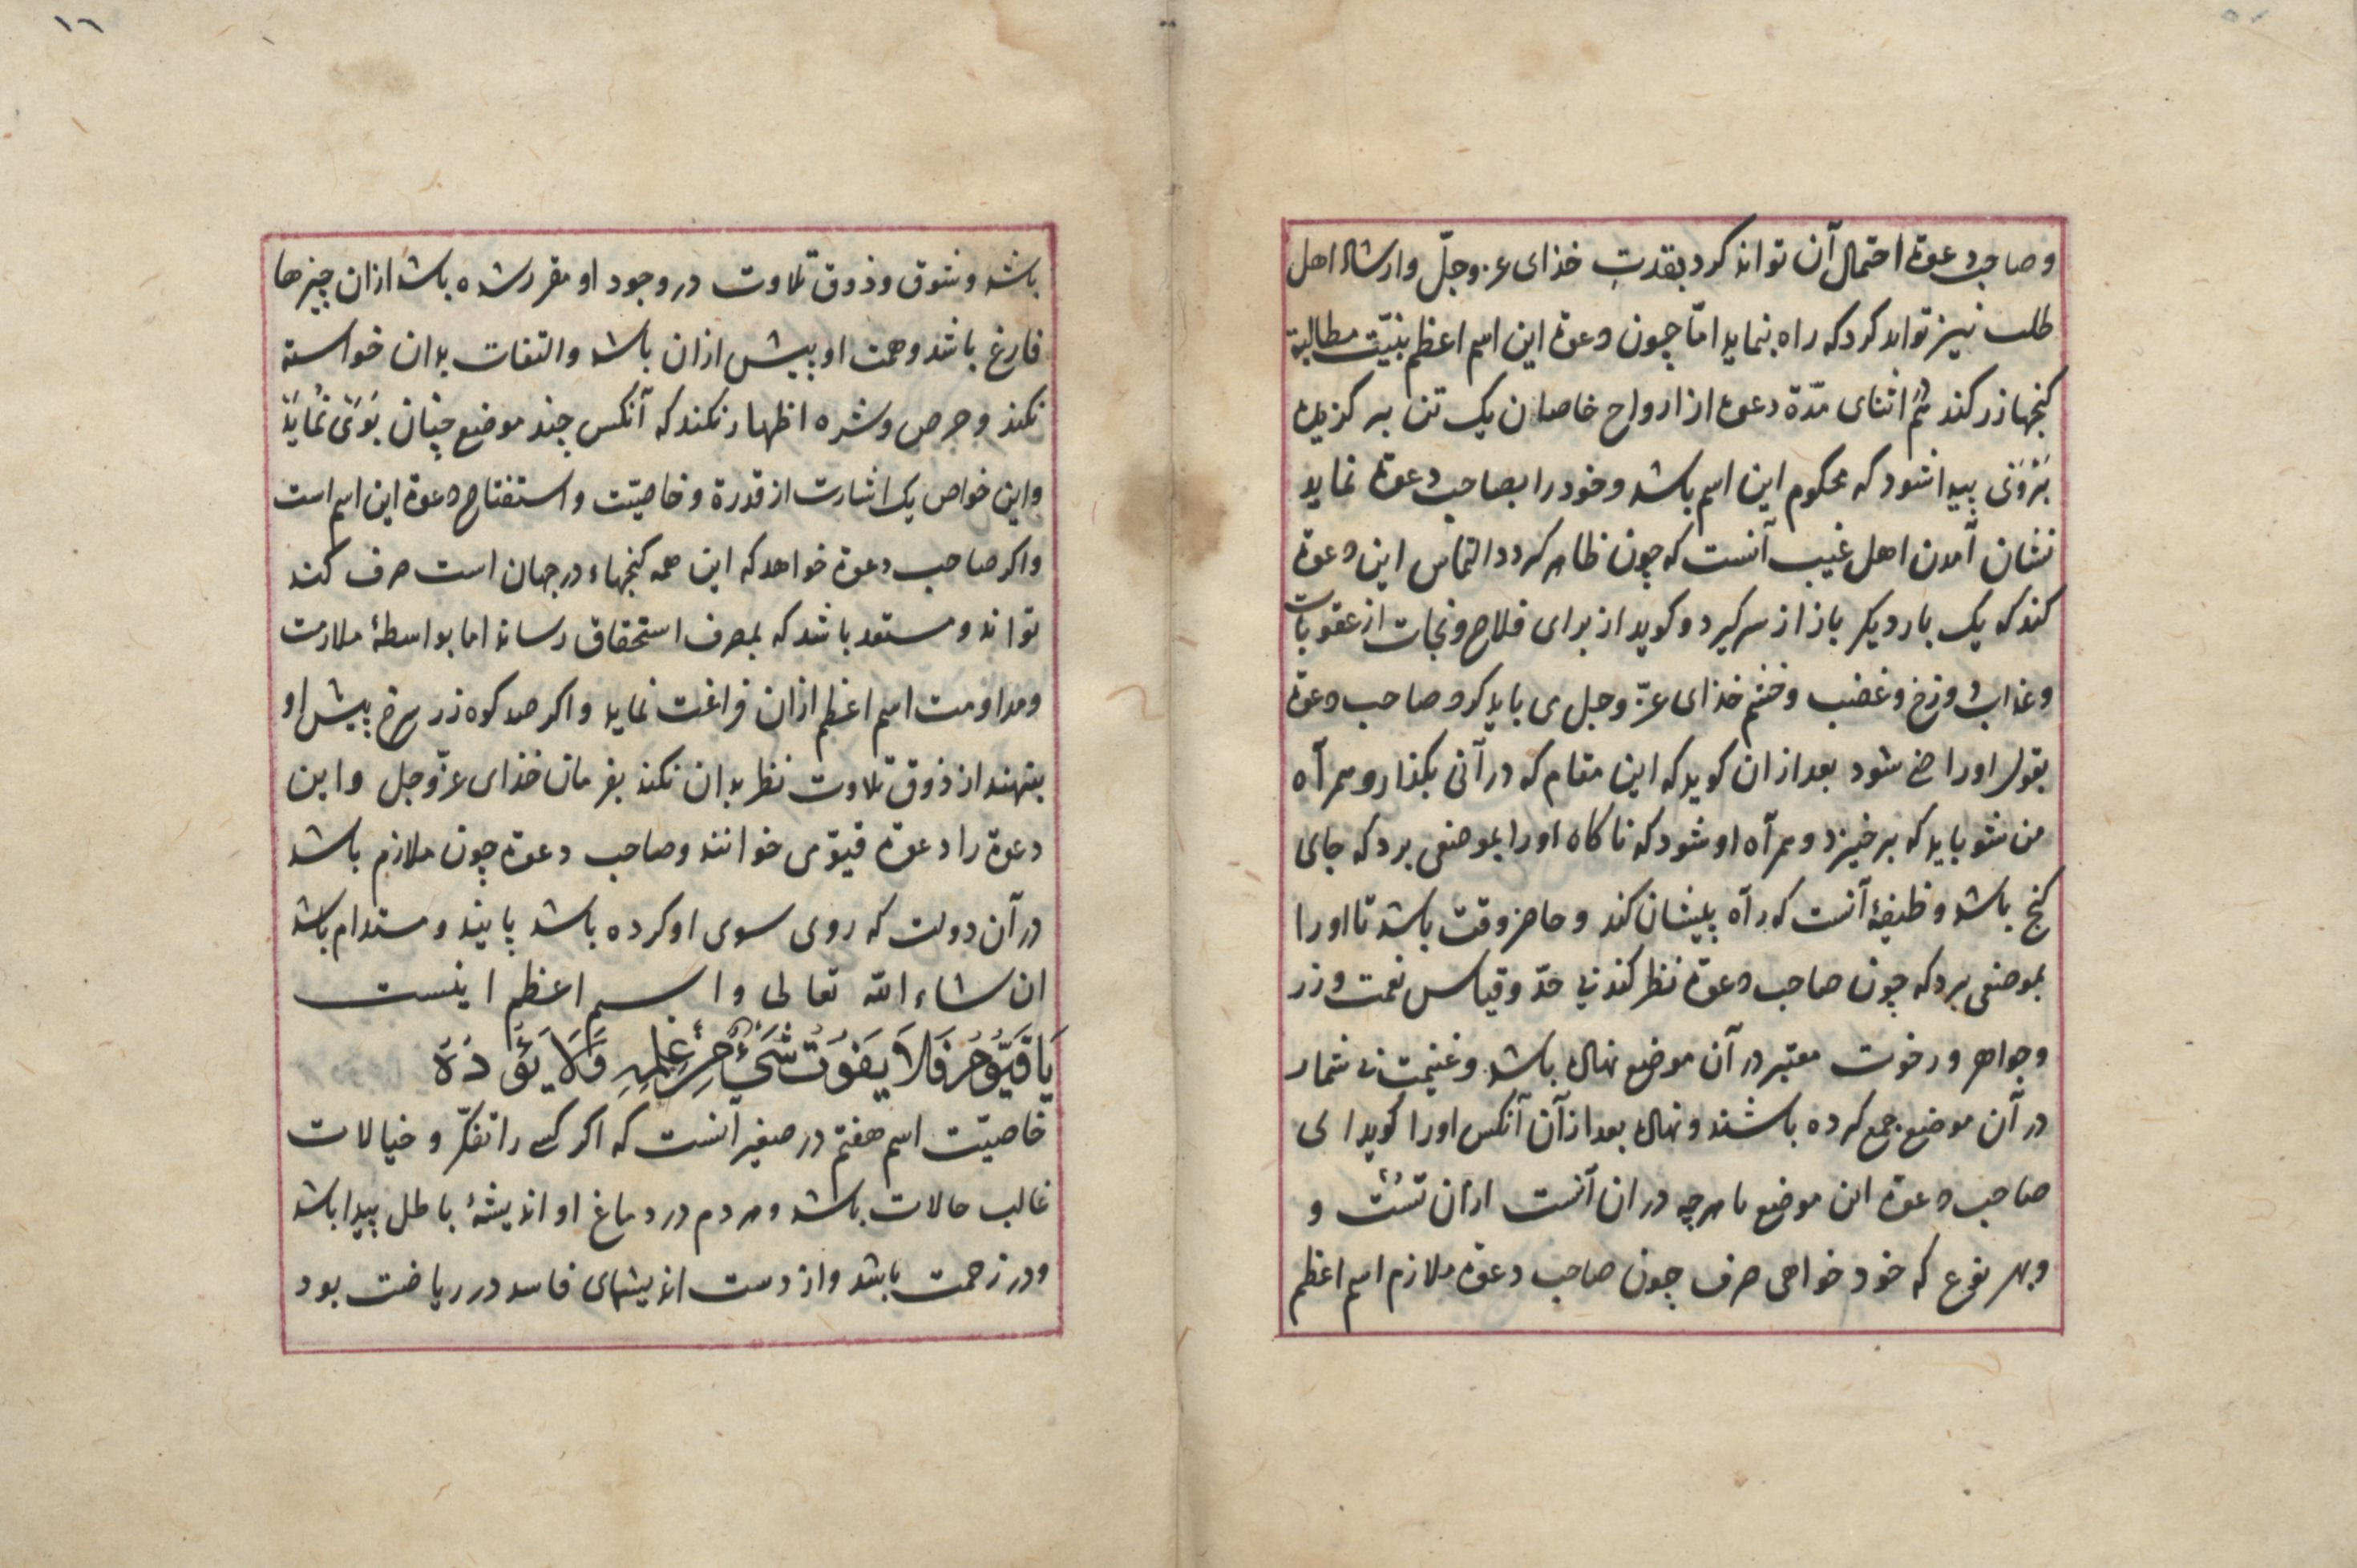 وصاحب دعوة احتمال آن تواند کرد بقدرت خذای عز وجلّ وارشاد اهل
طلب نیز تواند کرد که راه بنماید امّا چون دعوة این اسم اعظم بنیّت مطالبة
کنجها زر کند اثنای مدّة دعوة از ارواح خاصان یک تن بر کزیده
پیدا شود که محکوم این اسم باشد وخود را بصاحب دعوة نماید
نشان آمدن اهل غیب آنست که چون ظاهر کردد التماس این دعوة
کند که یک بار دیکر باز از سر کیرد وکوید از برای فلاح ونجات از عقوبات
وعذاب دوزخ وغضب وخشم خذای عزّ وجل می باید کرد صاحب دعوة
بقول او راضی شود بعد از ان کوید که این مقام که در آنی بکذار وهمرآه
من شو باید که برخیزد وهمرآه او شود که ناکاه اورا بموضعی برد که جای
کنج باشد وظیفهٔ آنست که رآه بنیشان کند وحاضر وقت باشد تا اورا
بموضعی برد که چون صاحب دعوة نظر کند بی حدّ وقیاس نعمت وزر
وجواهر ورخوت معتبر در آن موضع نهاده باشد وغنیمت بی شمار
در آن موضع جمع کرده باشند ونهاده بعد از آن آنکس اورا کوید ای
صاحب دعوة این موضع با هرچه در ان آنست ازان تست و
وبهر نوع که خود خواهی صرف چون صاحب دعوة ملازم اسم اعظم
١٦
باشد وشوق وذوق تلاوت در وجود او مقرر شده باشد ازان چیزها
فارغ باشد وهمت او بیش ازان باشد والتفات بدان خواسته
نکند وحرص وشره اظهار نکند که آنکس چند موضع چنان بوی نماید
واین خواص یک اشارت از قدرة وخاصیّت واستفتاح دعوة این اسم است
واکر صاحب دعوة خواهد که این همه کنجهاء در جهان است صرف کند
تواند ومستعد باشد که بمصرف استحقاق رساند اما بواسطهٔ ملازمت
ومداومت اسم اعظم ازان فراغت نماید واکر صد کوه زر سرخ پیش او
بنهند از ذوق تلاوت نظر بدان نکند بفرمان خذای عزّ وجل واین
دعوة را دعوة قیّومی خوانند وصاحب دعوة چون ملازم باشد
در آن دولت که روی سوی او کرده باشد پاینده ومستدام باشد
ان شاء الله تعالی واسم اعظم اینست
یَا قَیُّوْمُ فَلَا یَفُوْتُ شَیْءٌ مِنْ عِلْمِهِ وَلَا یَؤُدُهُ
خاصیّت اسم هفتم در صغیر آنست که اکر کسی را تفکّر وخیالات
غالب حالات باشد وهر دم در دماغ او اندیشهٔ باطل پیدا باشد
ودر زحمت باشد واز دست اندیشهای فاسد در ریاضت بود